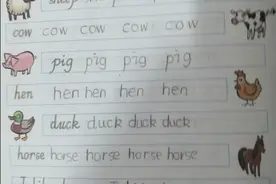 cow cow cow cow cow
pig pig pig pig
hen hen hen hen hen
duck duck duck duck
horse horse horse horse horse